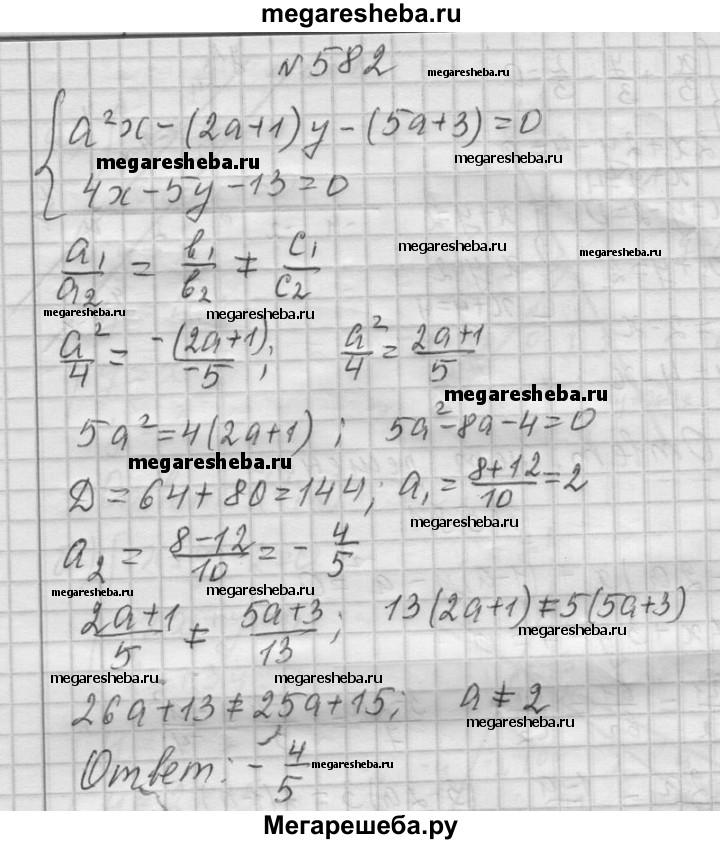 megaresheba.ru
№ 582
megaresheba.ru
a²x − (2a+1)y − (5a+3) = 0
megaresheba.ru megaresheba.ru
4x − 5y − 13 = 0
a₁/a₂ = b₁/b₂ ≠ c₁/c₂
megaresheba.ru megaresheba.ru
megaresheba.ru megaresheba.ru
a²/4 = −(2a+1)/−5; a²/4 = (2a+1)/5
megaresheba.ru
5a² = 4(2a+1); 5a² − 8a − 4 = 0
megaresheba.ru
Д = 64 + 80 = 144; a₁ = (8+12)/10 = 2
megaresheba.ru
a₂ = (8−12)/10 = −4/5
megaresheba.ru megaresheba.ru
(2a+1)/5 ≠ (5a+3)/13; 13(2a+1) ≠ 5(5a+3)
megaresheba.ru
megaresheba.ru megaresheba.ru
26a + 13 ≠ 25a + 15; a ≠ 2
megaresheba.ru
Ответ: −4/5
megaresheba.ru
Мегарешеба.ру